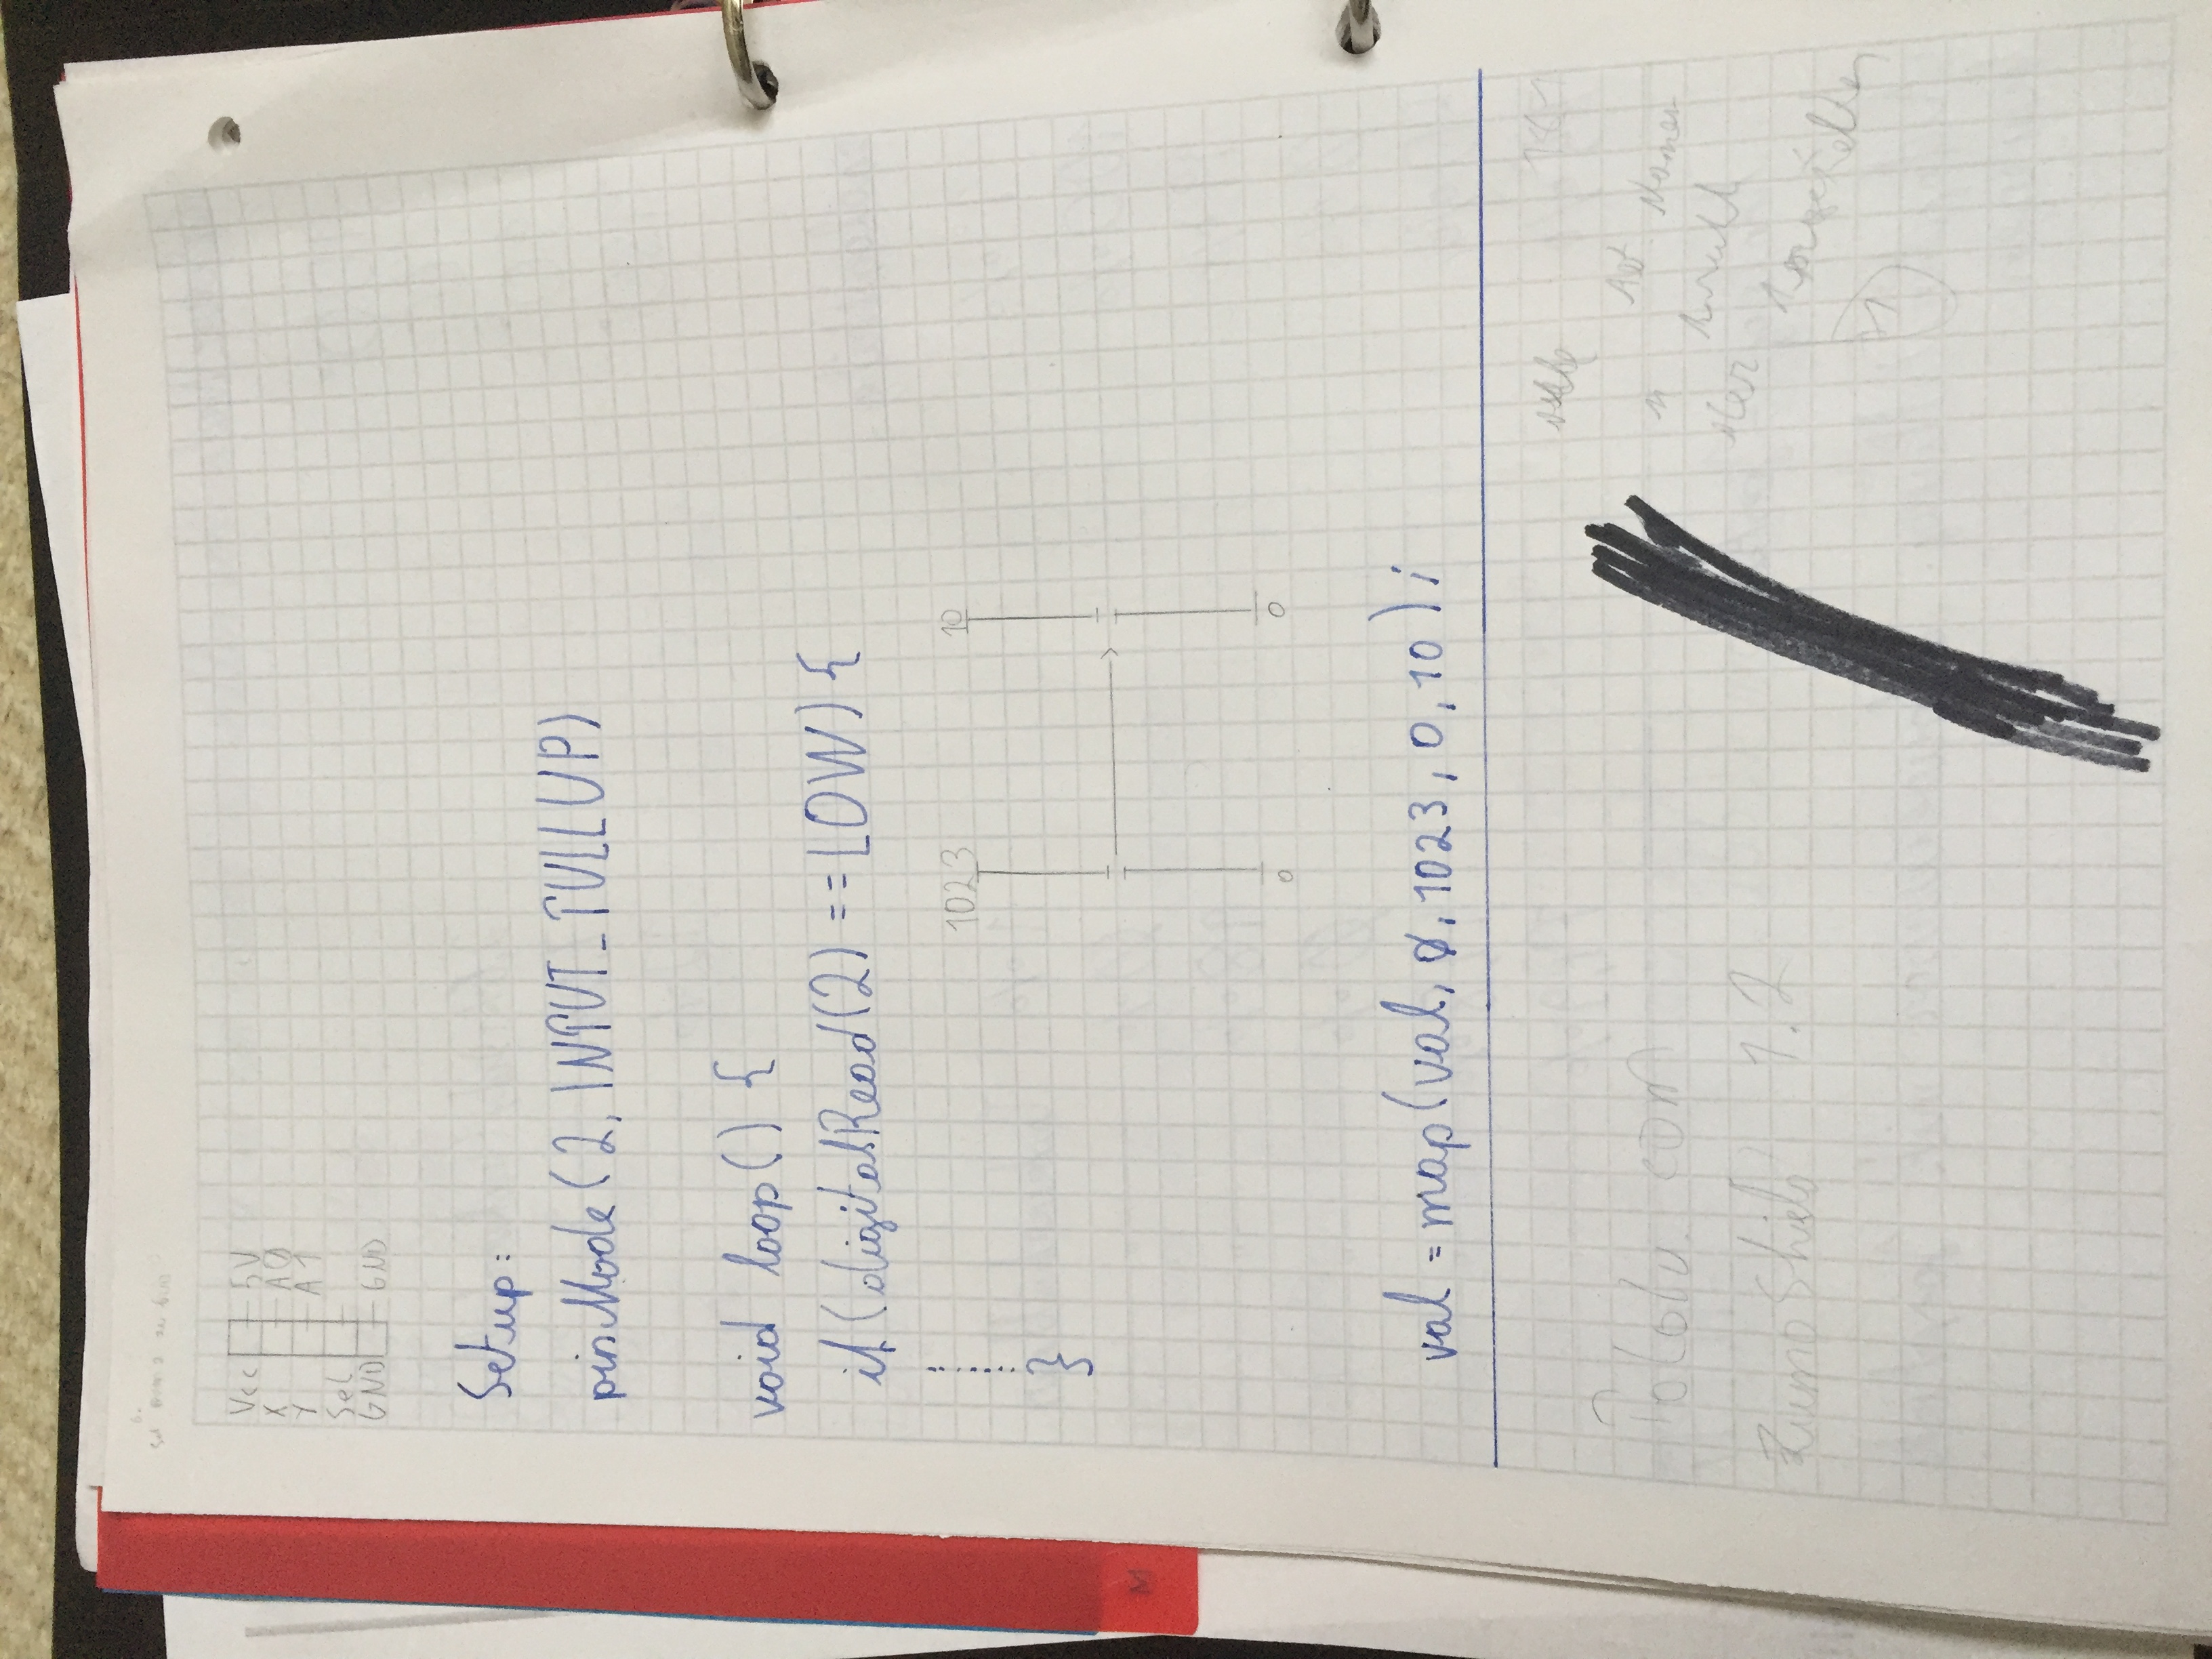 Vcc 5V
X A0
Y A1
Sel
GND GND
Setup:
pinMode(2, INPUT_PULLUP)
void loop() {
if(digitalRead(2) == LOW) {
}
1023 10
0 0
val = map(val, 0, 1023, 0, 10);
Pololu.com
Zumo Shield 1.2
M